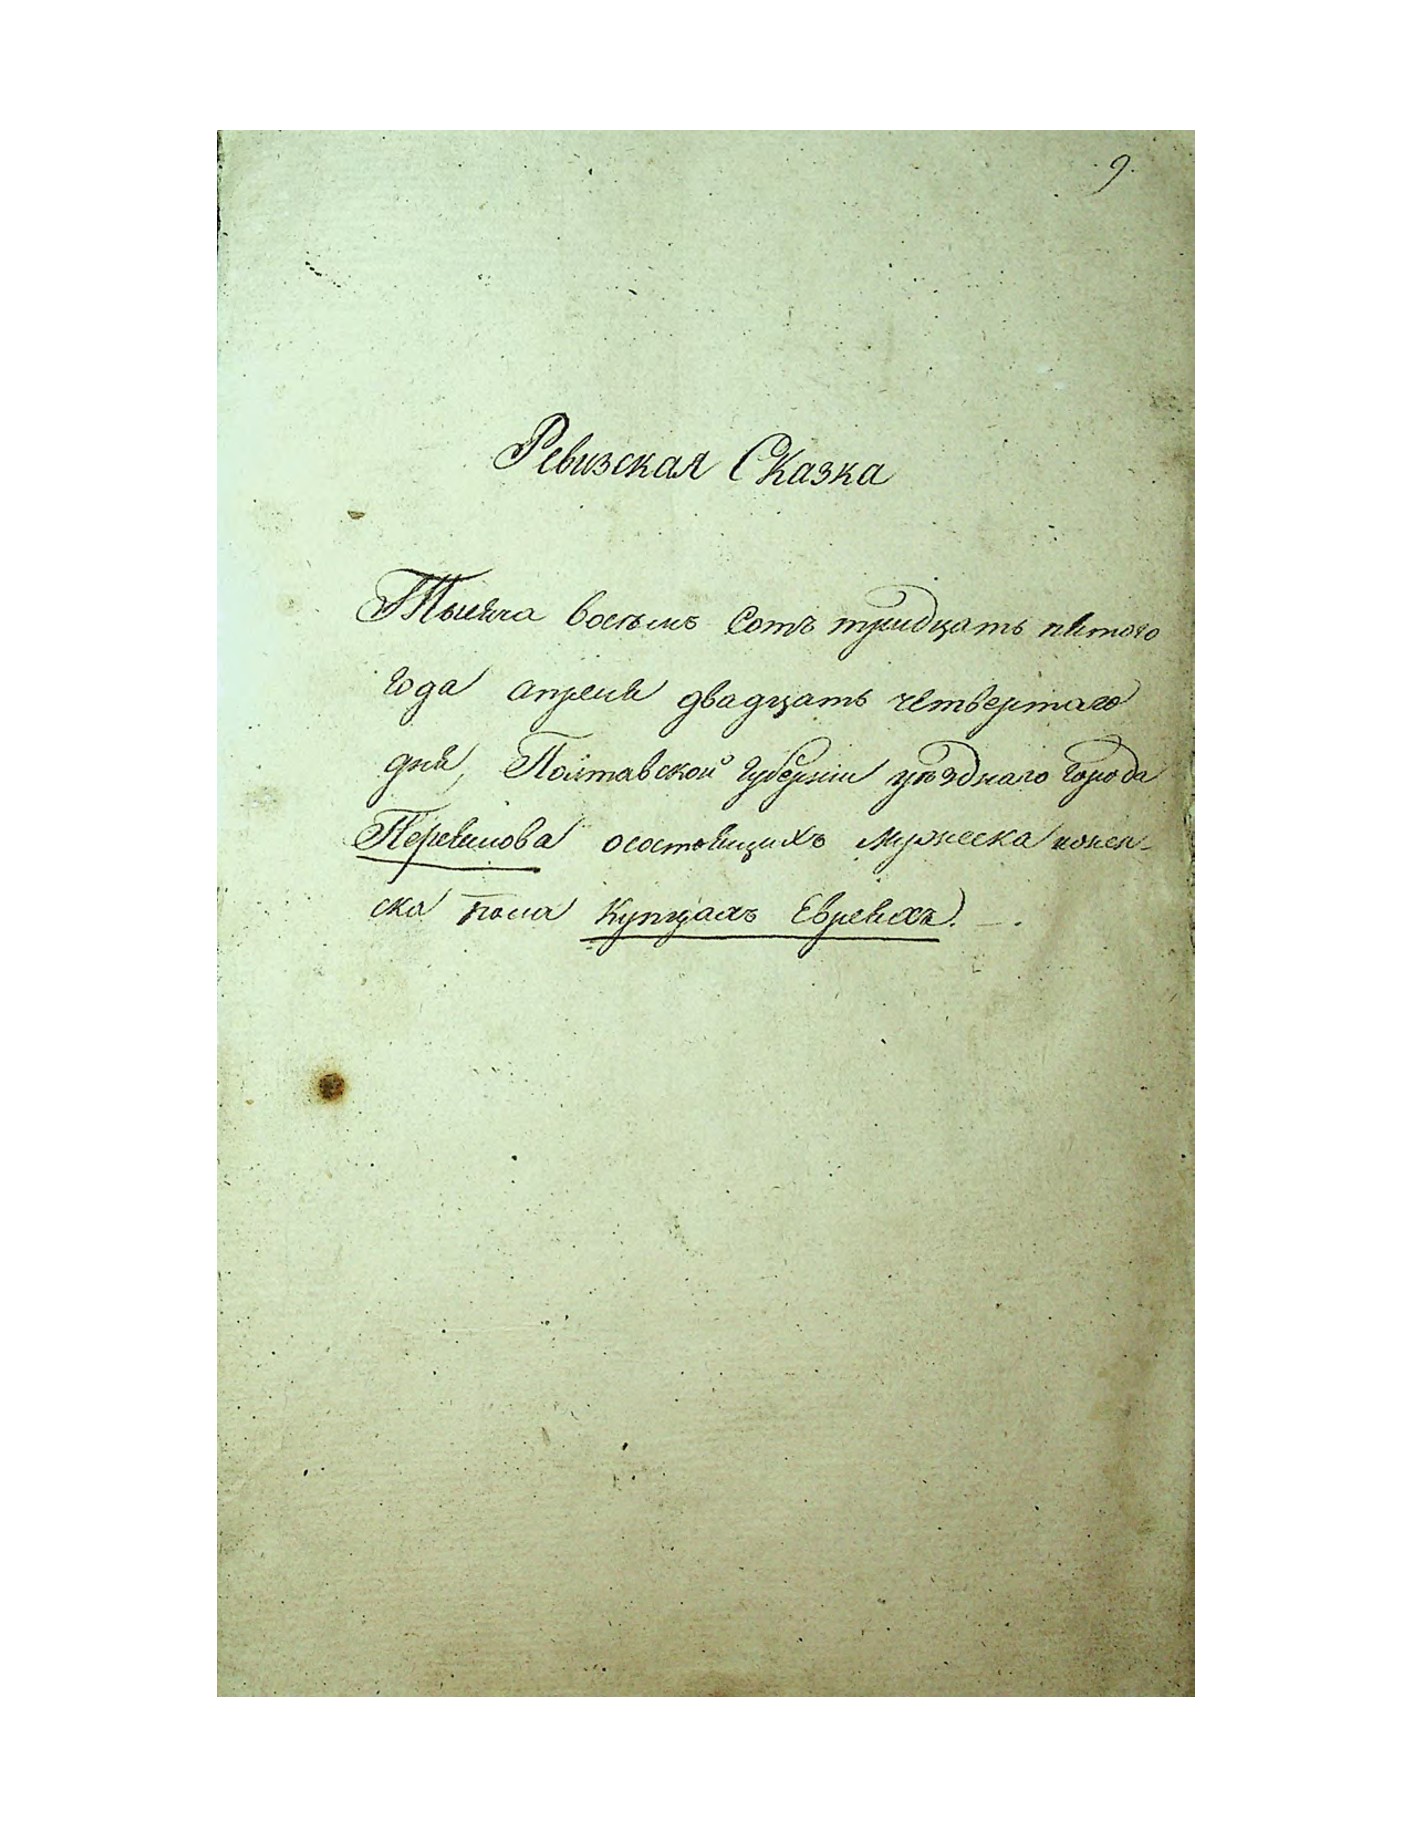 9.
Ревизская Сказка
Тысяча восемь Сотъ тридцать пятого
года апреля двадцать четвертаго
дня, Полтавской Губернии уѣзднаго города
Переяслова осостоящихъ мужеска иженъ-
ска пола Купцахъ Евреяхъ. —.